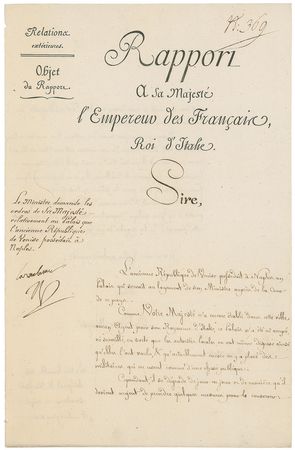 Relations
extérieures.
Objet
du Rapport.
N.º 369
Rapport
A Sa Majesté
l'Empereur des Français,
Roi d'Italie.
Sire,
Le Ministre demande les
ordres de Sa Majesté
relativement au Palais que
l'ancienne République
de Venise possédait à
Naples.
L'ancienne République de Venise possédait à Naples, un
Palais qui servait au logement de son Ministre auprès de la Cour
de ce pays.
Comme Votre Majesté n'a
aucun Agent pour son Royaume d'Italie, ce Palais n'a été ni
ni
qu'elles l'ont voulu,
militaires qui en usent comme d'une chose publique.
Cependant il se dégrade de jour en jour de manière qu'il
devient urgent de prendre quelques mesures pour le conserver.